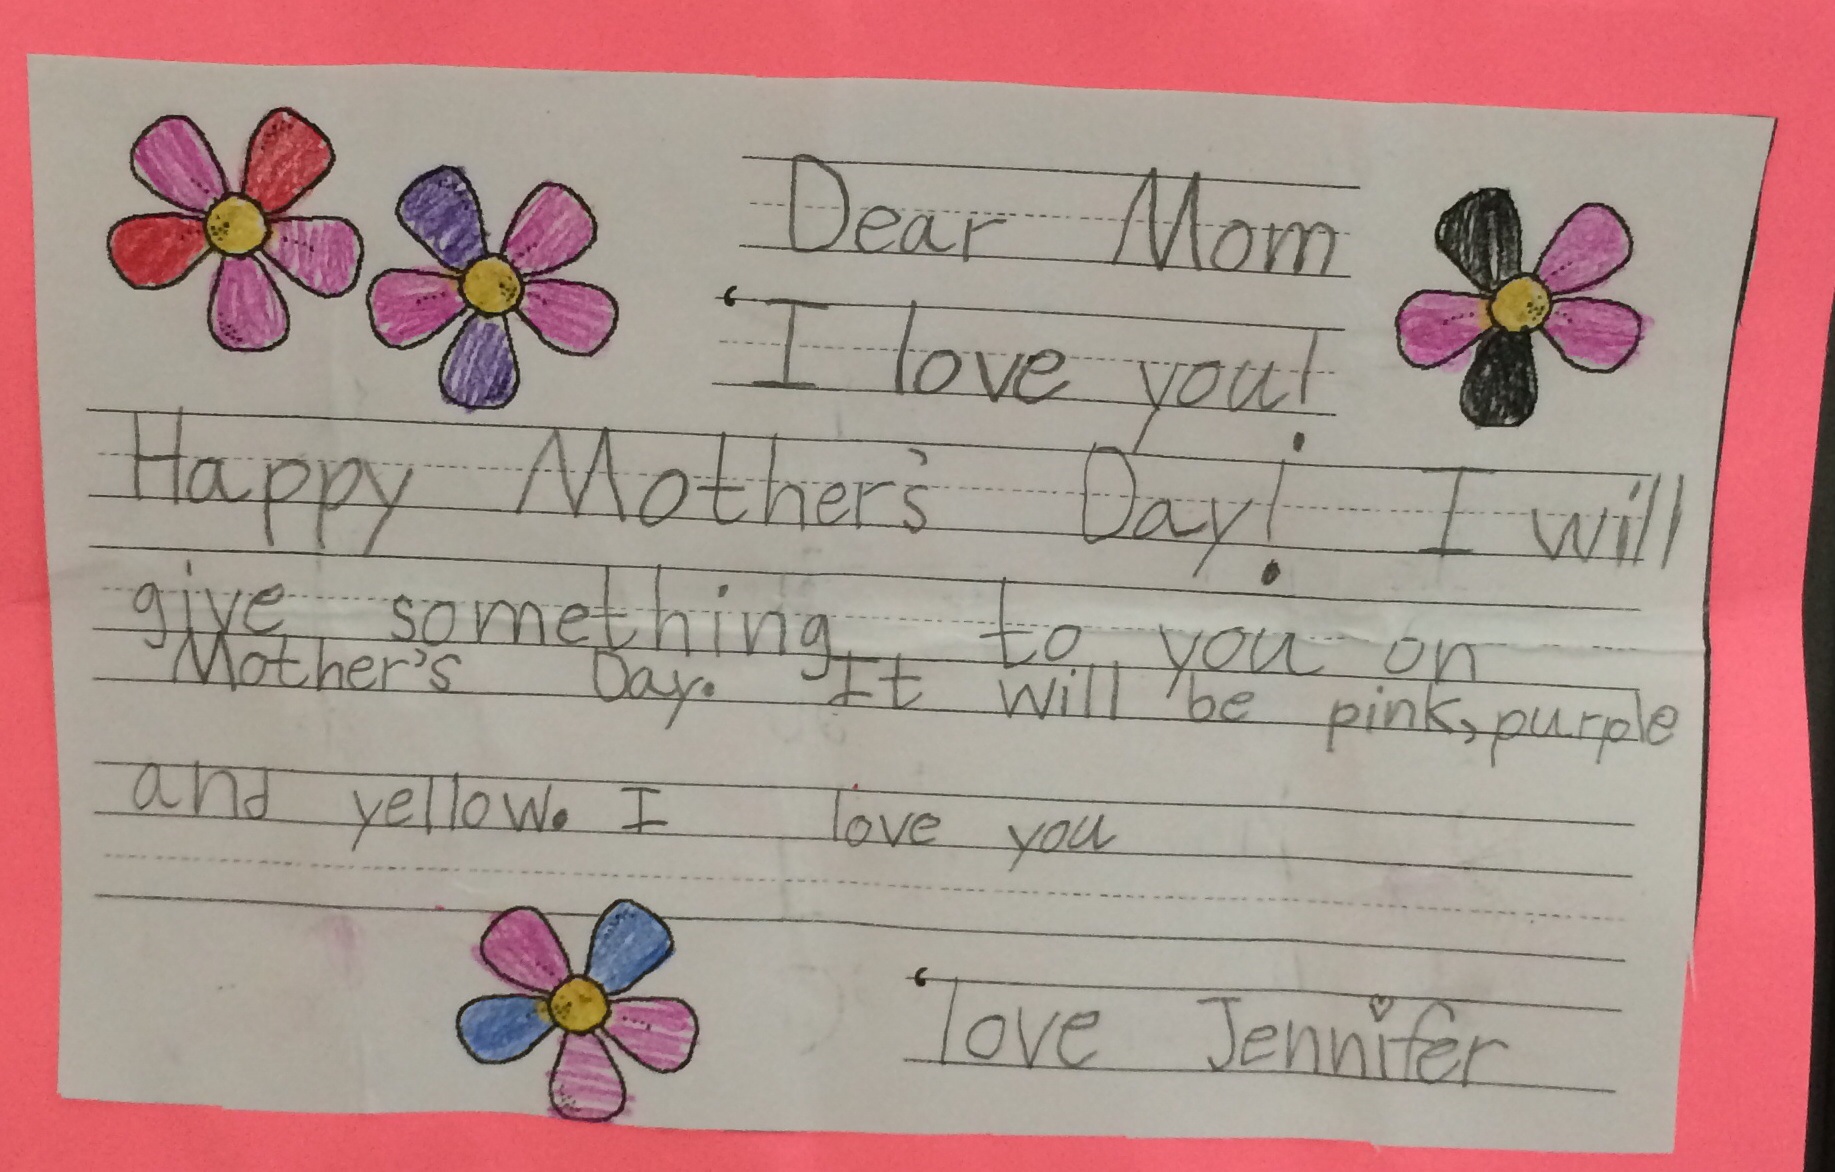 Dear Mom
I love you!
Happy Mother's Day! I will
give something to you on
Mother's Day. It will be pink, purple
and yellow. I love you
love Jennifer